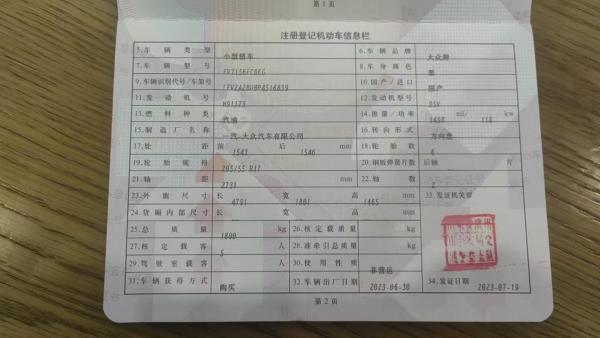 第1页
注册登记机动车信息栏
5.车辆类型 小型轿车 6.车辆品牌 大众牌
7.车辆型号 FV7156FCDEG 8.车身颜色
9.车辆识别代号/车架号 10.国产/进口 国产
11.发动机号 12.发动机型号 DSV
13.燃料种类 汽油 14.排量/功率 ml/ 118 kw
15.制造厂名称 一汽-大众汽车有限公司 16.转向形式 方向盘
17.轮距 前 1543 后 1546 mm 18.轮胎数 4
19.轮胎规格 205/55 R17 20.钢板弹簧片数 后轴
21.轴距 2731 mm 22.轴数 2
23.外廓尺寸 长 4791 宽 1801 高 1465 mm 33.发证机关章
24.货厢内部尺寸 长 宽 高 mm
25.总质量 1890 kg 26.核定载质量 kg
27.核定载客 5 人 28.准牵引总质量 kg
29.驾驶室载客 人 30.使用性质 非营运
31.车辆获得方式 购买 32.车辆出厂日期 2023-06-30 34.发证日期 2023-07-19
第2页